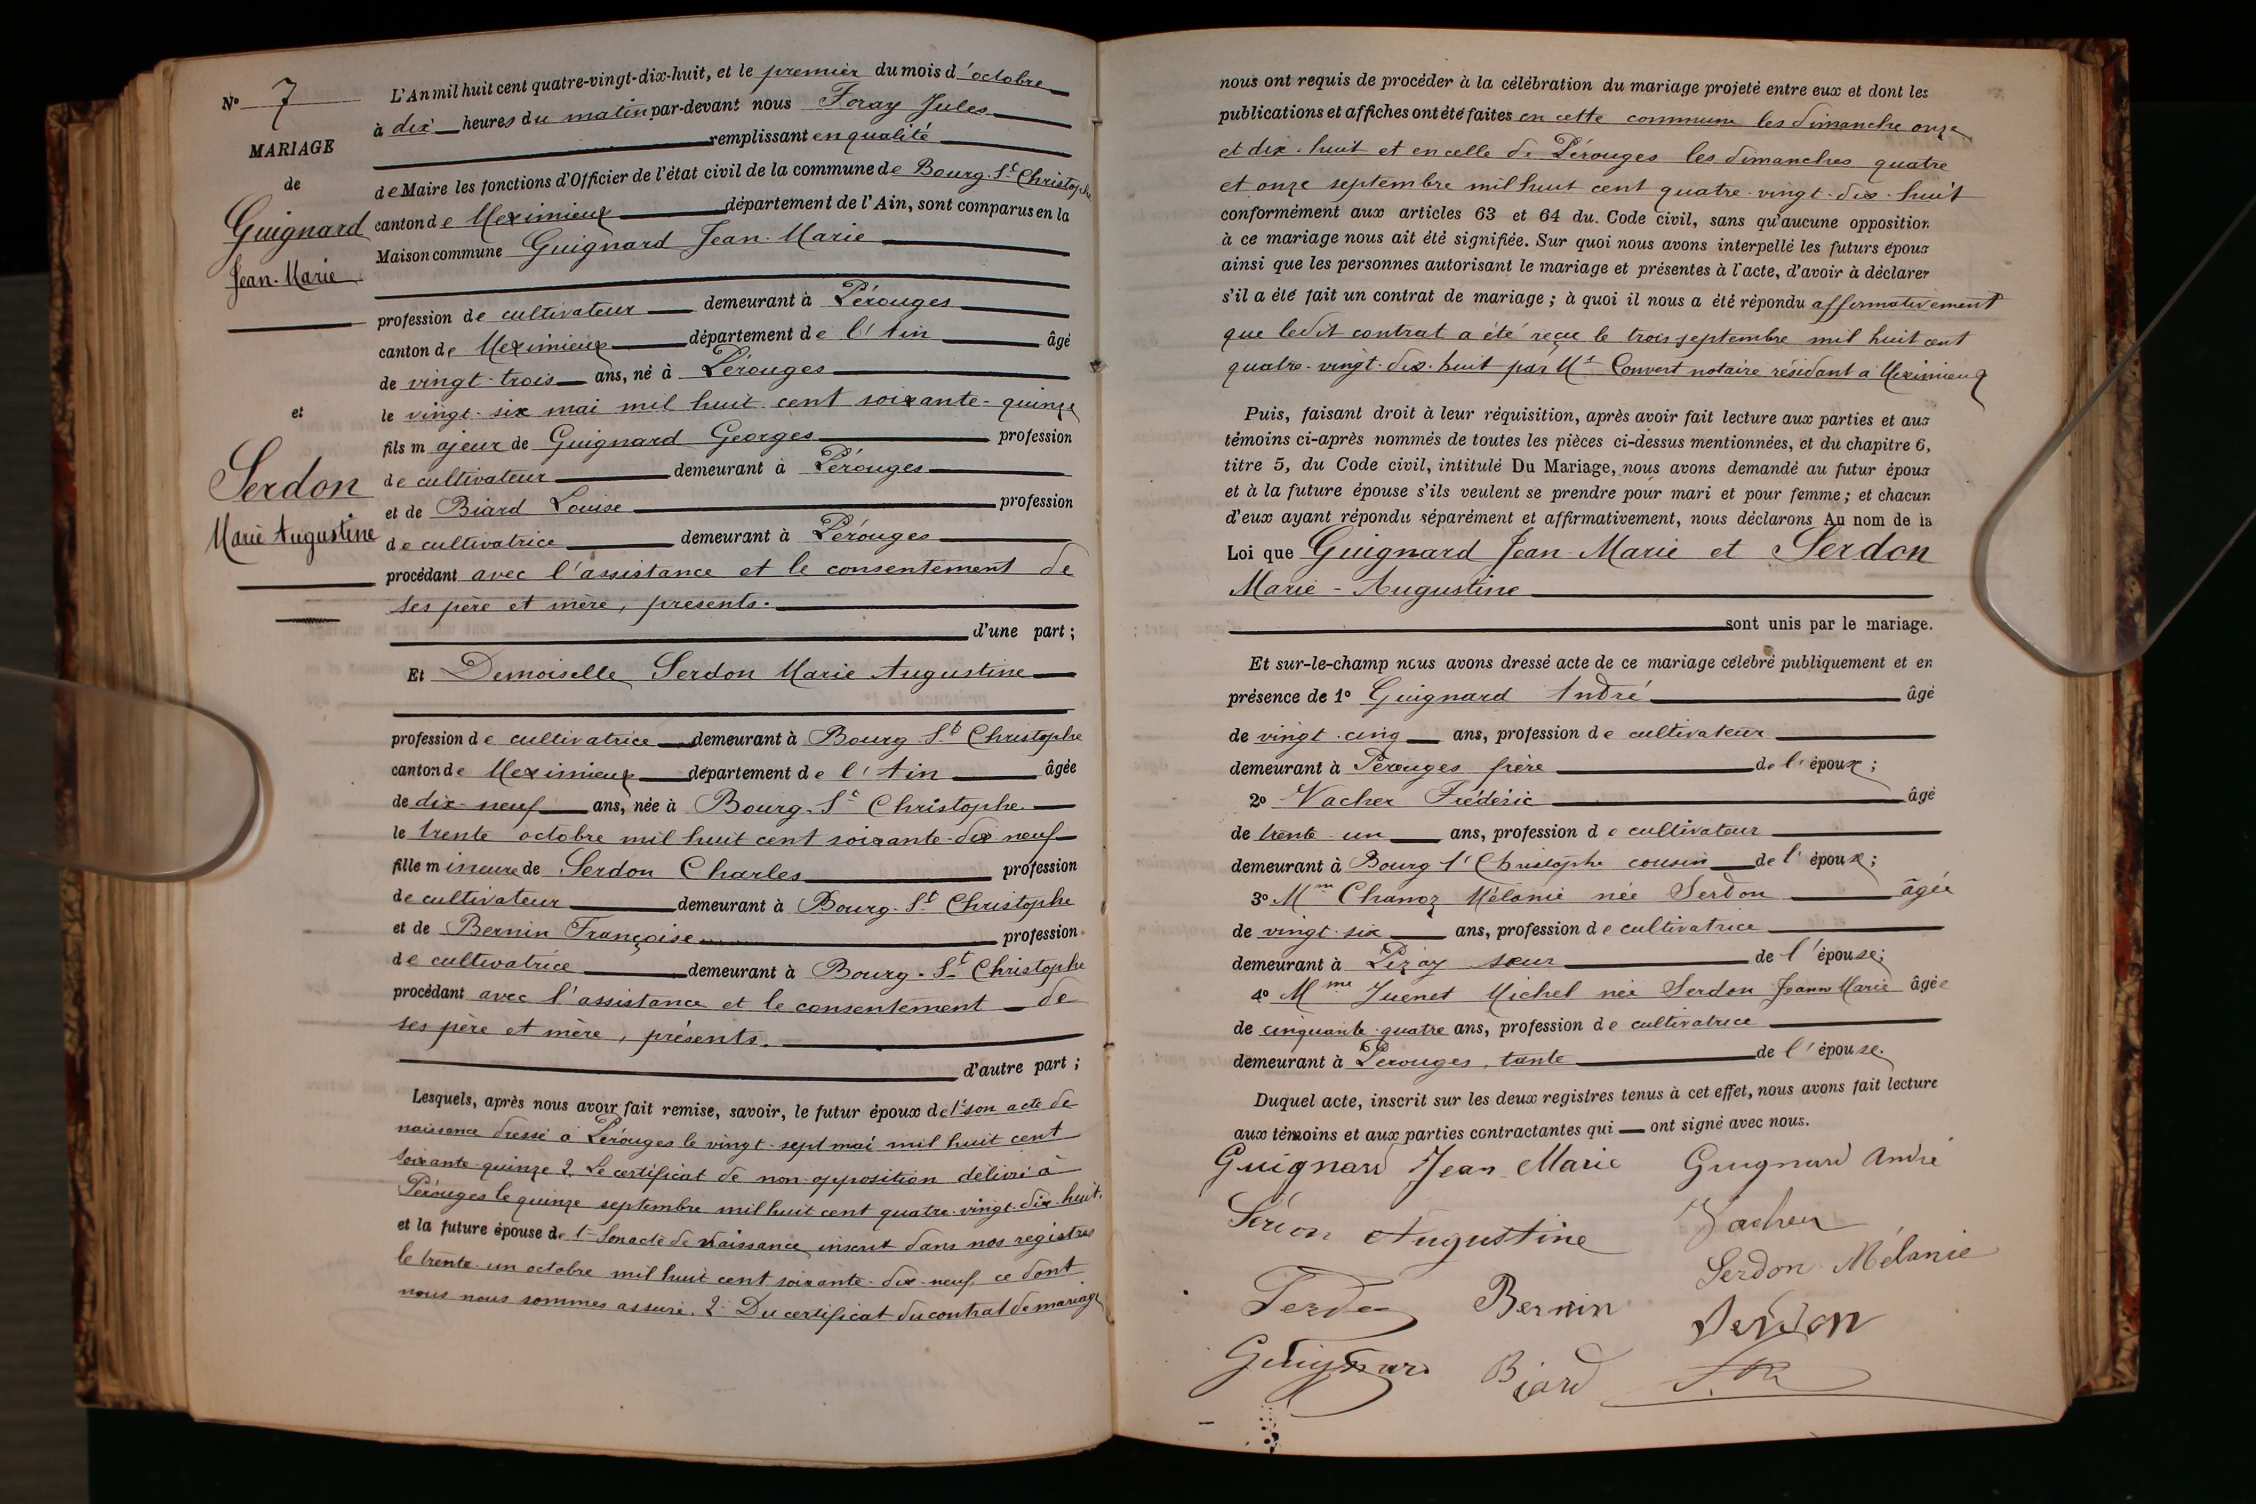 N° 7
MARIAGE
de
Guignard
Jean-Marie
et
Serdon
Marie Augustine
L'An mil huit cent quatre-vingt-dix-huit, et le premier du mois d'octobre
à dix heures du matin par-devant nous Foray Jules
remplissant en qualité
de Maire les fonctions d'Officier de l'état civil de la commune de Bourg-St Christophe
canton de Meximieux département de l'Ain, sont comparus en la
Maison commune Guignard Jean-Marie
profession de cultivateur demeurant à Pérouges
canton de Meximieux département de l'Ain âgé
de vingt-trois ans, né à Pérouges
le vingt-six mai mil huit cent soixante-quinze
fils majeur de Guignard Georges profession
de cultivateur demeurant à Pérouges
et de Biard Louise profession
de cultivatrice demeurant à Pérouges
procédant avec l'assistance et le consentement de
ses père et mère, présents.
d'une part ;
Et Demoiselle Serdon Marie Augustine
profession de cultivatrice demeurant à Bourg St Christophe
canton de Meximieux département de l'Ain âgée
de dix-neuf ans, née à Bourg-St Christophe.
le trente octobre mil huit cent soixante-dix neuf
fille mineure de Serdon Charles profession
de cultivateur demeurant à Bourg-St Christophe
et de Bernin Françoise profession
de cultivatrice demeurant à Bourg-St Christophe
procédant avec l'assistance et le consentement de
ses père et mère, présents.
d'autre part ;
Lesquels, après nous avoir fait remise, savoir, le futur époux de 1° son acte de
naissance dressé à Pérouges le vingt-sept mai mil huit cent
soixante-quinze 2. Le certificat de non-opposition délivré à
Pérouges le quinze septembre mil huit cent quatre-vingt-dix-huit.
et la future épouse de 1° Son acte de naissance inscrit dans nos registres
le trente-un octobre mil huit cent soixante-dix-neuf ce dont
nous nous sommes assuré. 2° Du certificat du contrat de mariage
nous ont requis de procéder à la célébration du mariage projeté entre eux et dont les
publications et affiches ont été faites en cette commune les dimanche onze
et dix-huit et en celle de Pérouges les dimanches quatre
et onze septembre mil huit cent quatre-vingt-dix-huit
conformément aux articles 63 et 64 du Code civil, sans qu'aucune opposition
à ce mariage nous ait été signifiée. Sur quoi nous avons interpellé les futurs époux
ainsi que les personnes autorisant le mariage et présentes à l'acte, d'avoir à déclarer
s'il a été fait un contrat de mariage ; à quoi il nous a été répondu affirmativement
que ledit contrat a été reçu le trois septembre mil huit cent
quatre-vingt-dix-huit par Me Convert notaire résidant à Meximieux
Puis, faisant droit à leur réquisition, après avoir fait lecture aux parties et aux
témoins ci-après nommés de toutes les pièces ci-dessus mentionnées, et du chapitre 6,
titre 5, du Code civil, intitulé Du Mariage, nous avons demandé au futur époux
et à la future épouse s'ils veulent se prendre pour mari et pour femme ; et chacun
d'eux ayant répondu séparément et affirmativement, nous déclarons Au nom de la
Loi que Guignard Jean-Marie et Serdon
Marie-Augustine
sont unis par le mariage.
Et sur-le-champ nous avons dressé acte de ce mariage célébré publiquement et en
présence de 1° Guignard André âgé
de vingt-cinq ans, profession de cultivateur
demeurant à Pérouges frère de l'époux ;
2° Vacher Frédéric âgé
de trente-un ans, profession de cultivateur
demeurant à Bourg St Christophe cousin de l'époux ;
3° Mme Chanoz Mélanie née Serdon âgée
de vingt-six ans, profession de cultivatrice
demeurant à Pizay sœur de l'épouse ;
4° Mme Juenet Michel née Serdon Jeanne Marie âgée
de cinquante-quatre ans, profession de cultivatrice
demeurant à Pérouges, tante de l'épouse.
Duquel acte, inscrit sur les deux registres tenus à cet effet, nous avons fait lecture
aux témoins et aux parties contractantes qui ont signé avec nous.
Guignard Jean Marie Guignard André
Augustine Vacher
Serdon Mélanie
Bernin Serdon
Guignard Biard